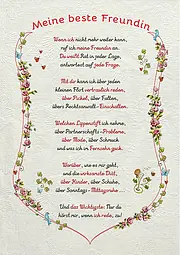 Meine beste Freundin
Wenn ich nicht mehr weiter kann,
ruf ich meine Freundin an.
Du weißt Rat in jeder Lage,
antwortest auf jede Frage.
Mit dir kann ich über jeden
kleinen Flirt vertraulich reden,
über Pickel, über Falten,
übers Rechtsanwalt-Einschalten.
Welchen Lippenstift ich nehme,
über Partnerschafts-Probleme,
über Mode, über Schmuck
und was ich in Fernsehn guck.
Worüber, wie es mir geht,
und die wirksamste Diät,
über Kinder, über Schuhe,
über Sonntags-Mittagsruhe ...
Und das Wichtigste: Nur du
hörst mir, wenn ich rede, zu!